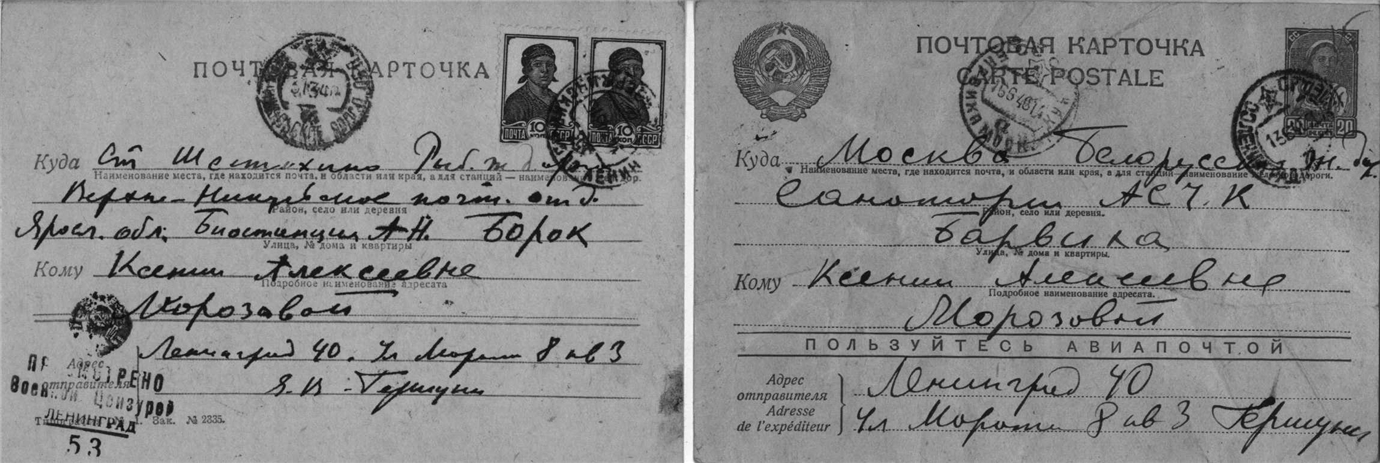 ПОЧТОВАЯ КАРТОЧКА
ПОЧТА 10 КОП. СССР
ПОЧТА 10 КОП. СССР
Куда Ст Шестихино Рыб. ж д
Наименование места, где находится почта, и области или края, а для станций — наименование
Верхне-Никульское почт. отд.
Район, село или деревня
Яросл. обл. Биостанция АН. БОРОК
Улица, № дома и квартиры
Кому Ксении Алексеевне
Подробное наименование адресата
Морозовой
Адрес отправителя
Ленинград 40. Ул Марата 8 кв 3
Гершуни
ПРОСМОТРЕНО
Военной Цензурой
ЛЕНИНГРАД
53
Зак. № 2835.
ПОЧТОВАЯ КАРТОЧКА
CARTE POSTALE
20
20
Куда Москва Белорусская ж. д.
Наименование места, где находится почта, и области или края, а для станций — наименование дороги.
Санатории
Район, село или деревня.
Барвиха
Улица, № дома и квартиры.
Кому Ксении Алексеевне
Подробное наименование адресата.
Морозовой
ПОЛЬЗУЙТЕСЬ АВИАПОЧТОЙ
Адрес
отправителя
Adresse
de l'expéditeur
Ленинград 40
Ул Марата 8 кв 3 Гершуни